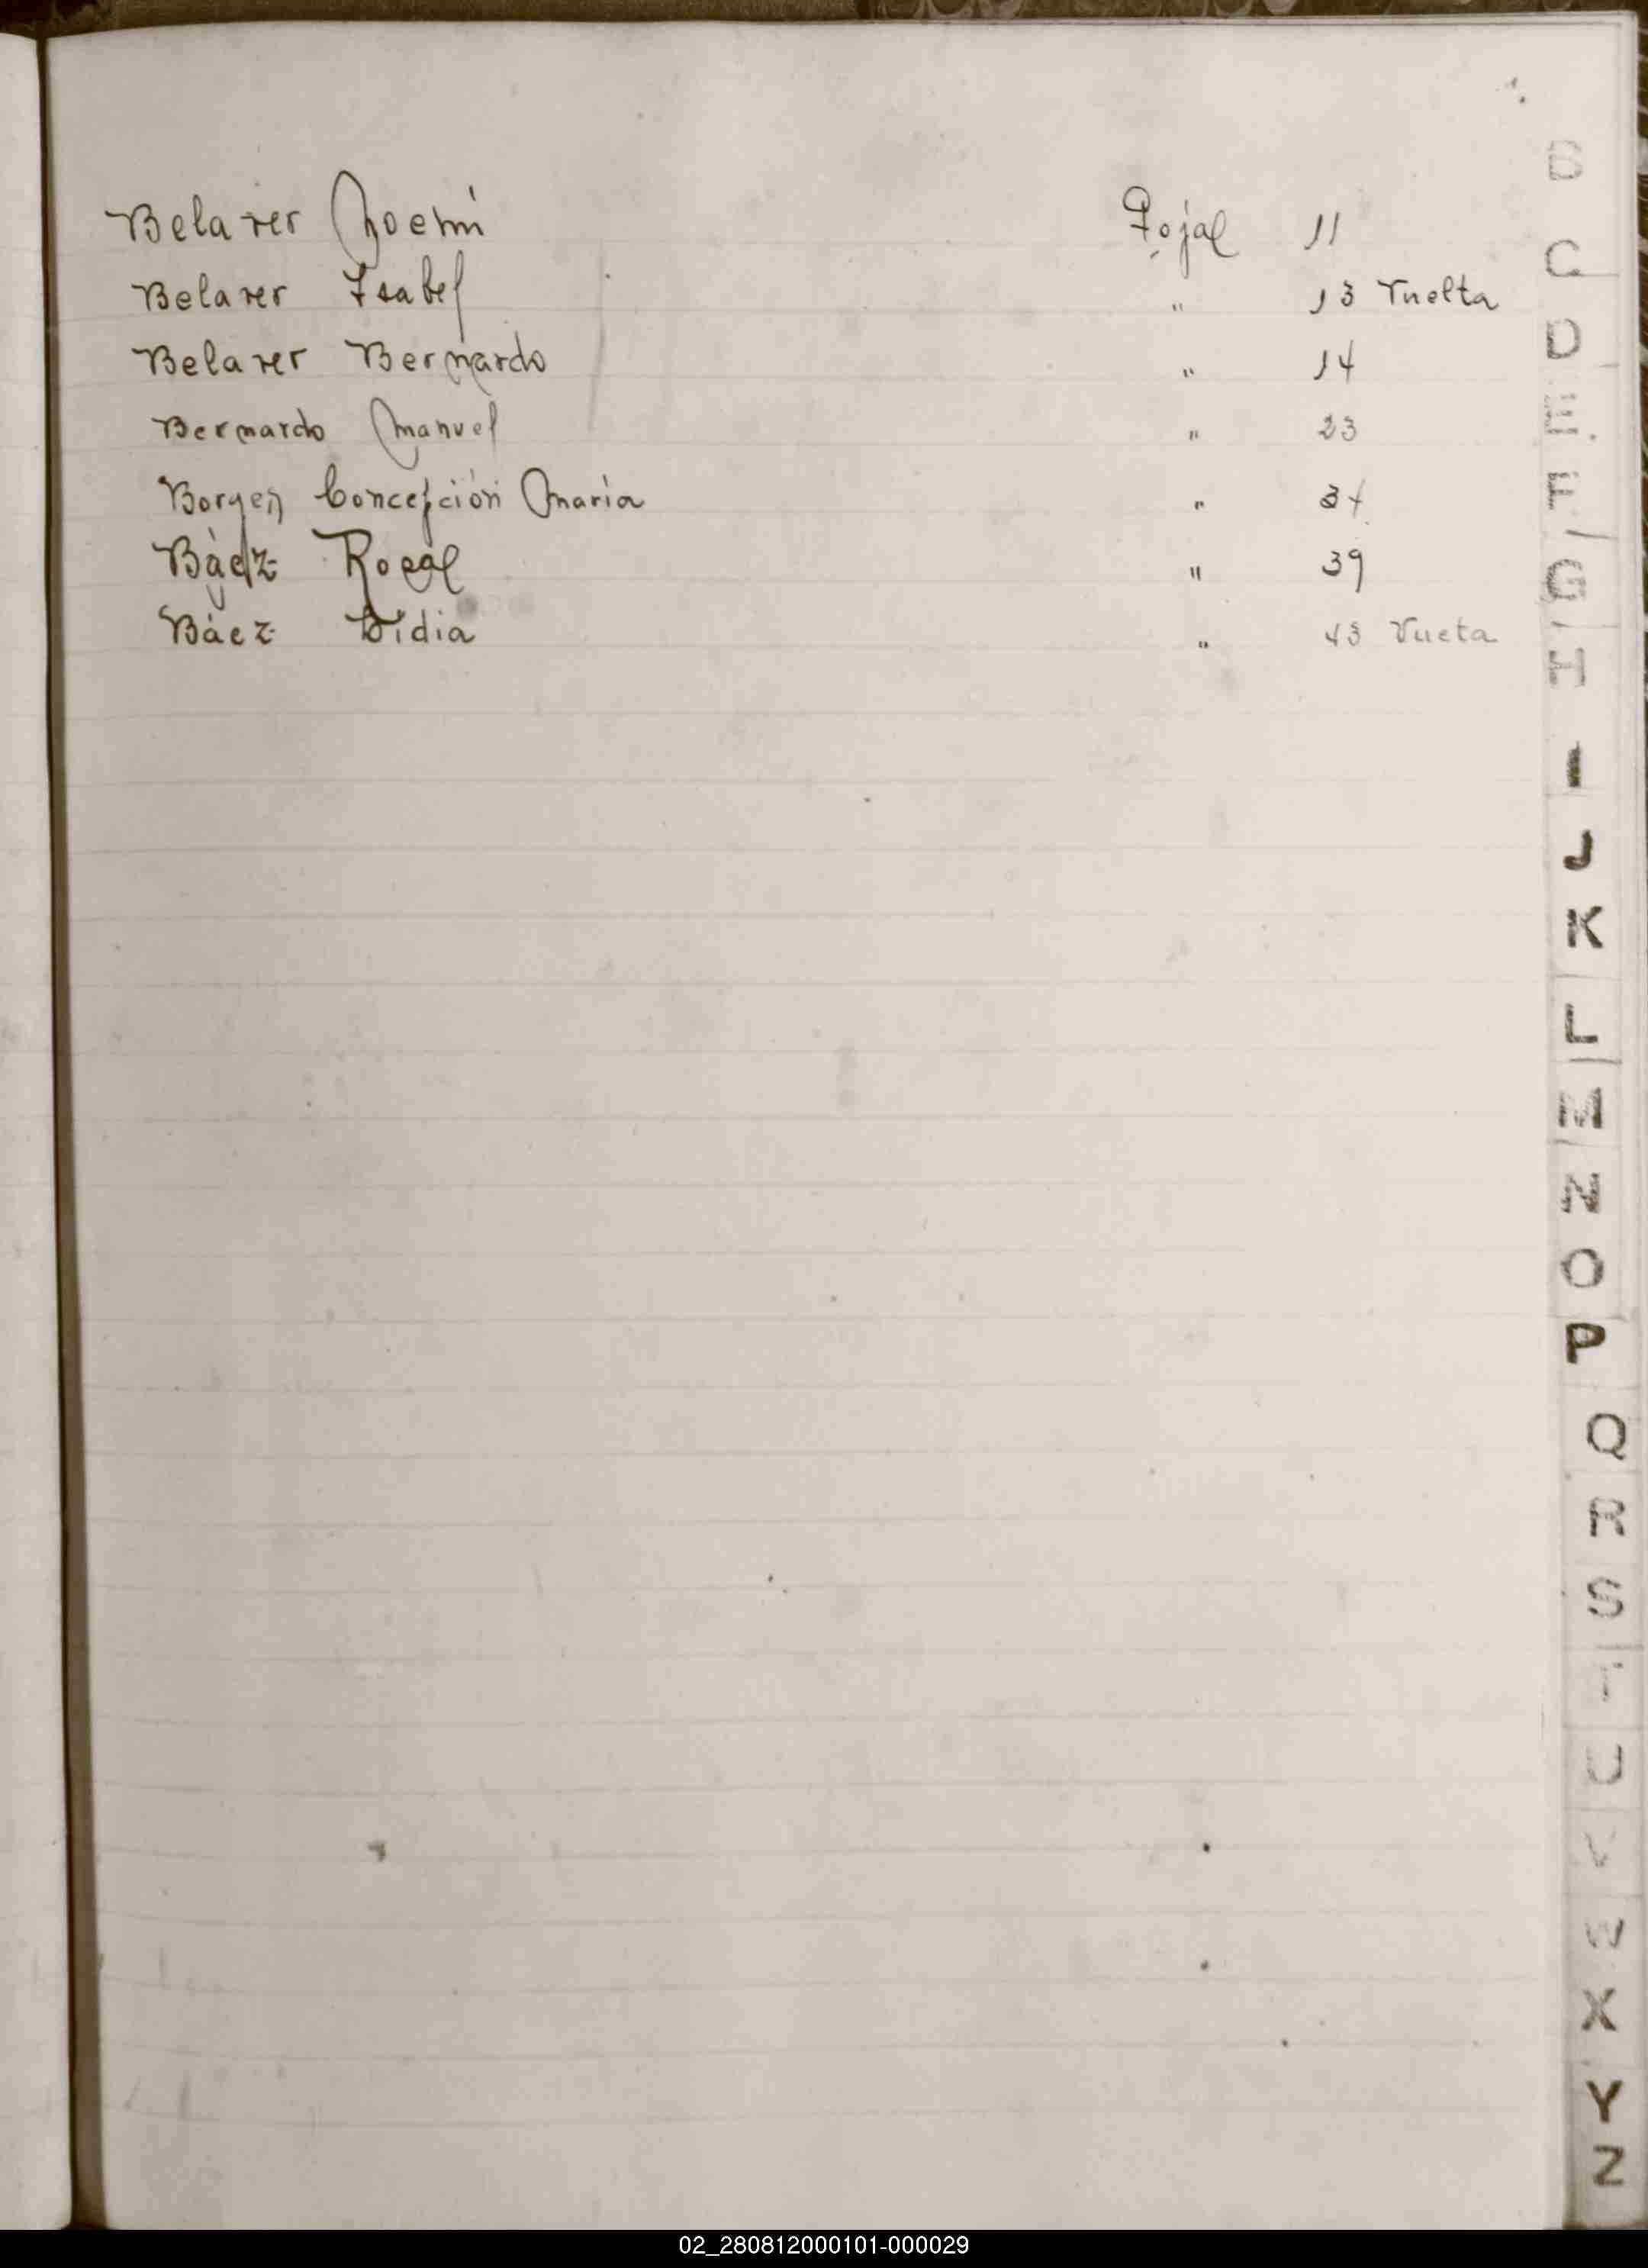 Belaver Noemí Fojal 11
Belaver Isabel " 13 Vuelta
Belaver Bernardo " 14
Bernardo Manuel " 23
Borgen Concepción María " 37
Báez Rosal " 39
Báez Lidia " 43 Vueta
B
C
D
E
F
G
H
I
J
K
L
M
N
O
P
Q
R
S
T
U
V
W
X
Y
Z
02_280812000101-000029